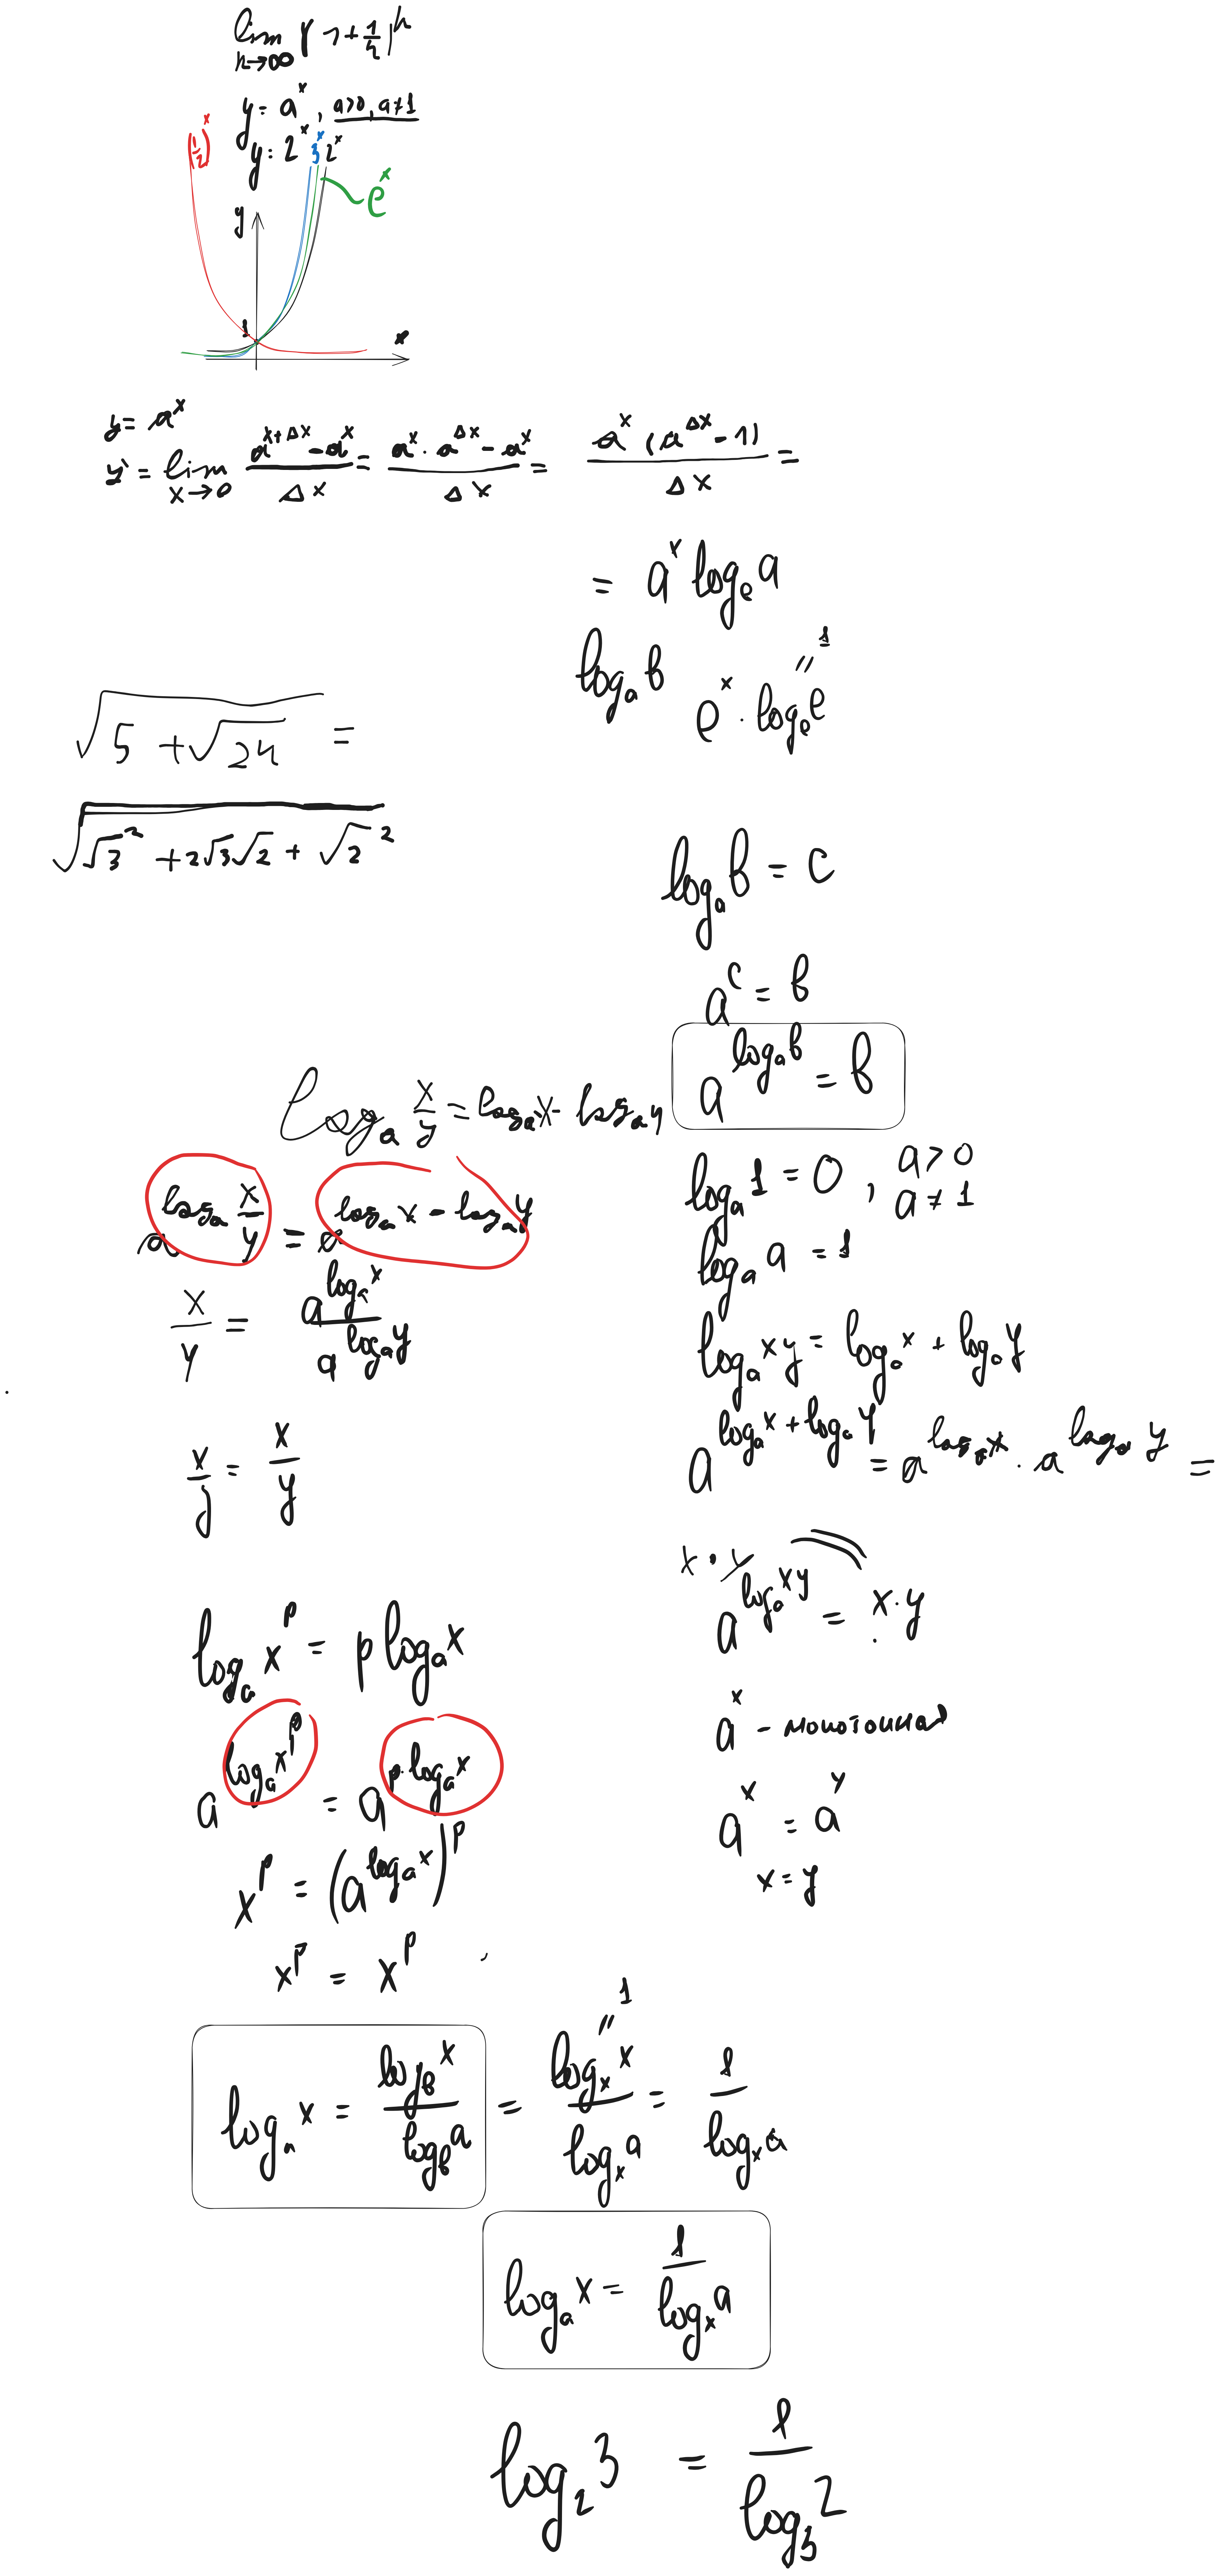 lim (1 + 1/n)^n
n→∞
y = a^x , a>0, a≠1
(1/2)^x y = 2^x 3^x 2^x
e^x
y
1
x
y = a^x
y' = lim x→0 (a^(x+Δx) - a^x)/Δx = (a^x · a^Δx - a^x)/Δx = (a^x (a^Δx - 1))/Δx =
= a^x log_e a
log_a b e^x · log_e e = 1
√(5 + √24) =
√(√3^2 + 2√3√2 + √2^2)
log_a b = c
a^c = b
a^(log_a b) = b
log_a x/y = log_a x - log_a y
log_a 1 = 0 , a > 0
a ≠ 1
a^(log_a x/y) = a^(log_a x - log_a y)
log_a a = 1
x/y = a^(log_a x) / a^(log_a y)
log_a xy = log_a x + log_a y
a^(log_a x + log_a y) = a^(log_a x) · a^(log_a y) =
x/y = x/y
x · y
a^(log_a xy) = x · y
log_a x^p = p log_a x
a^x - монотонная
a^(log_a x^p) = a^(p · log_a x)
a^x = a^y
x^p = (a^(log_a x))^p
x = y
x^p = x^p
log_a x = log_b x / log_b a = log_x x / log_x a = 1 / log_x a
" 1
log_a x = 1 / log_x a
log_2 3 = 1 / log_3 2